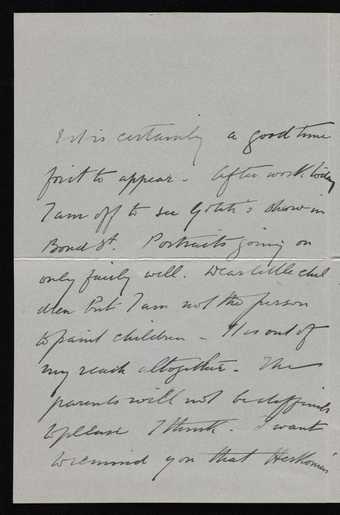 it is certainly a good time
for it to appear - After work today
I am off to see Gotch's show in
Bond St. Portraits going on
only fairly well. Dear little chil
dren but I am not the person
to paint children - It is out of
my reach altogether - The
parents will not be difficult
to please I think. I want
to remind you that